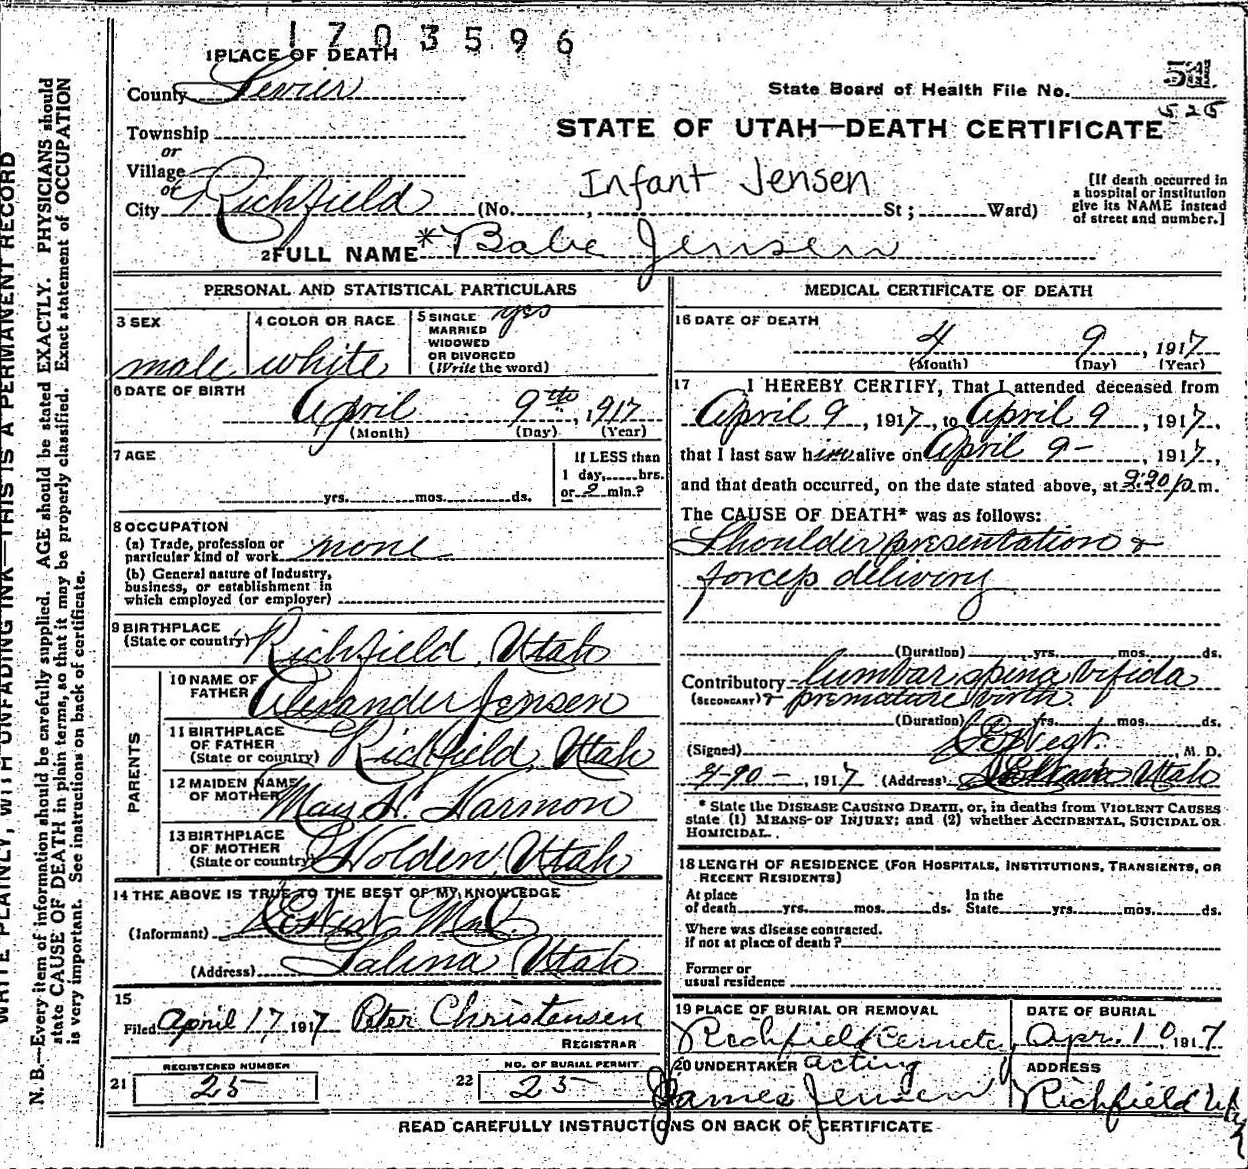 1703596
1 PLACE OF DEATH
County Sevier
State Board of Health File No. 51
525
Township
STATE OF UTAH—DEATH CERTIFICATE
or
Village
or
City Richfield (No. , St; Ward)
Infant Jensen
[If death occurred in a hospital or institution give its NAME instead of street and number.]
2 FULL NAME *Babe Jensen
PERSONAL AND STATISTICAL PARTICULARS
3 SEX male
4 COLOR OR RACE white
5 SINGLE MARRIED WIDOWED OR DIVORCED (Write the word) yes
6 DATE OF BIRTH
April 9th, 1917
(Month) (Day) (Year)
7 AGE
yrs. mos. ds.
If LESS than
1 day, hrs.
or 2 min.?
8 OCCUPATION
(a) Trade, profession or particular kind of work none
(b) General nature of industry, business, or establishment in which employed (or employer)
9 BIRTHPLACE (State or country) Richfield, Utah
PARENTS
10 NAME OF FATHER Alexander Jensen
11 BIRTHPLACE OF FATHER (State or country) Richfield, Utah
12 MAIDEN NAME OF MOTHER May H. Harmon
13 BIRTHPLACE OF MOTHER (State or country) Holden, Utah
14 THE ABOVE IS TRUE TO THE BEST OF MY KNOWLEDGE
(Informant)
(Address) Salina Utah
15
Filed April 17, 1917 Peter Christensen
REGISTRAR
REGISTERED NUMBER
21 25
NO. OF BURIAL PERMIT
22 25
MEDICAL CERTIFICATE OF DEATH
16 DATE OF DEATH
4 9, 1917
(Month) (Day) (Year)
17 I HEREBY CERTIFY, That I attended deceased from
April 9, 1917, to April 9, 1917,
that I last saw him alive on April 9-, 1917,
and that death occurred, on the date stated above, at p.m.
The CAUSE OF DEATH* was as follows:
Shoulder presentation &
forceps delivery
(Duration) yrs. mos. ds.
Contributory lumbar spina bifida
(SECONDARY) & premature birth.
(Duration) yrs. mos. ds.
(Signed) M. D.
, 1917 (Address) Utah
* State the DISEASE CAUSING DEATH, or, in deaths from VIOLENT CAUSES
state (1) MEANS OF INJURY; and (2) whether ACCIDENTAL, SUICIDAL OR
HOMICIDAL.
18 LENGTH OF RESIDENCE (FOR HOSPITALS, INSTITUTIONS, TRANSIENTS, OR
RECENT RESIDENTS)
At place of death yrs. mos. ds. In the State yrs. mos. ds.
Where was disease contracted.
if not at place of death?
Former or
usual residence
19 PLACE OF BURIAL OR REMOVAL
Richfield
DATE OF BURIAL
Apr. 10, 1917
20 UNDERTAKER acting
James Jensen
ADDRESS
Richfield
READ CAREFULLY INSTRUCTIONS ON BACK OF CERTIFICATE
WRITE PLAINLY, WITH UNFADING INK—THIS IS A PERMANENT RECORD
N. B.—Every item of information should be carefully supplied. AGE should be stated EXACTLY. PHYSICIANS should
state CAUSE OF DEATH in plain terms, so that it may be properly classified. Exact statement of OCCUPATION
is very important. See instructions on back of certificate.